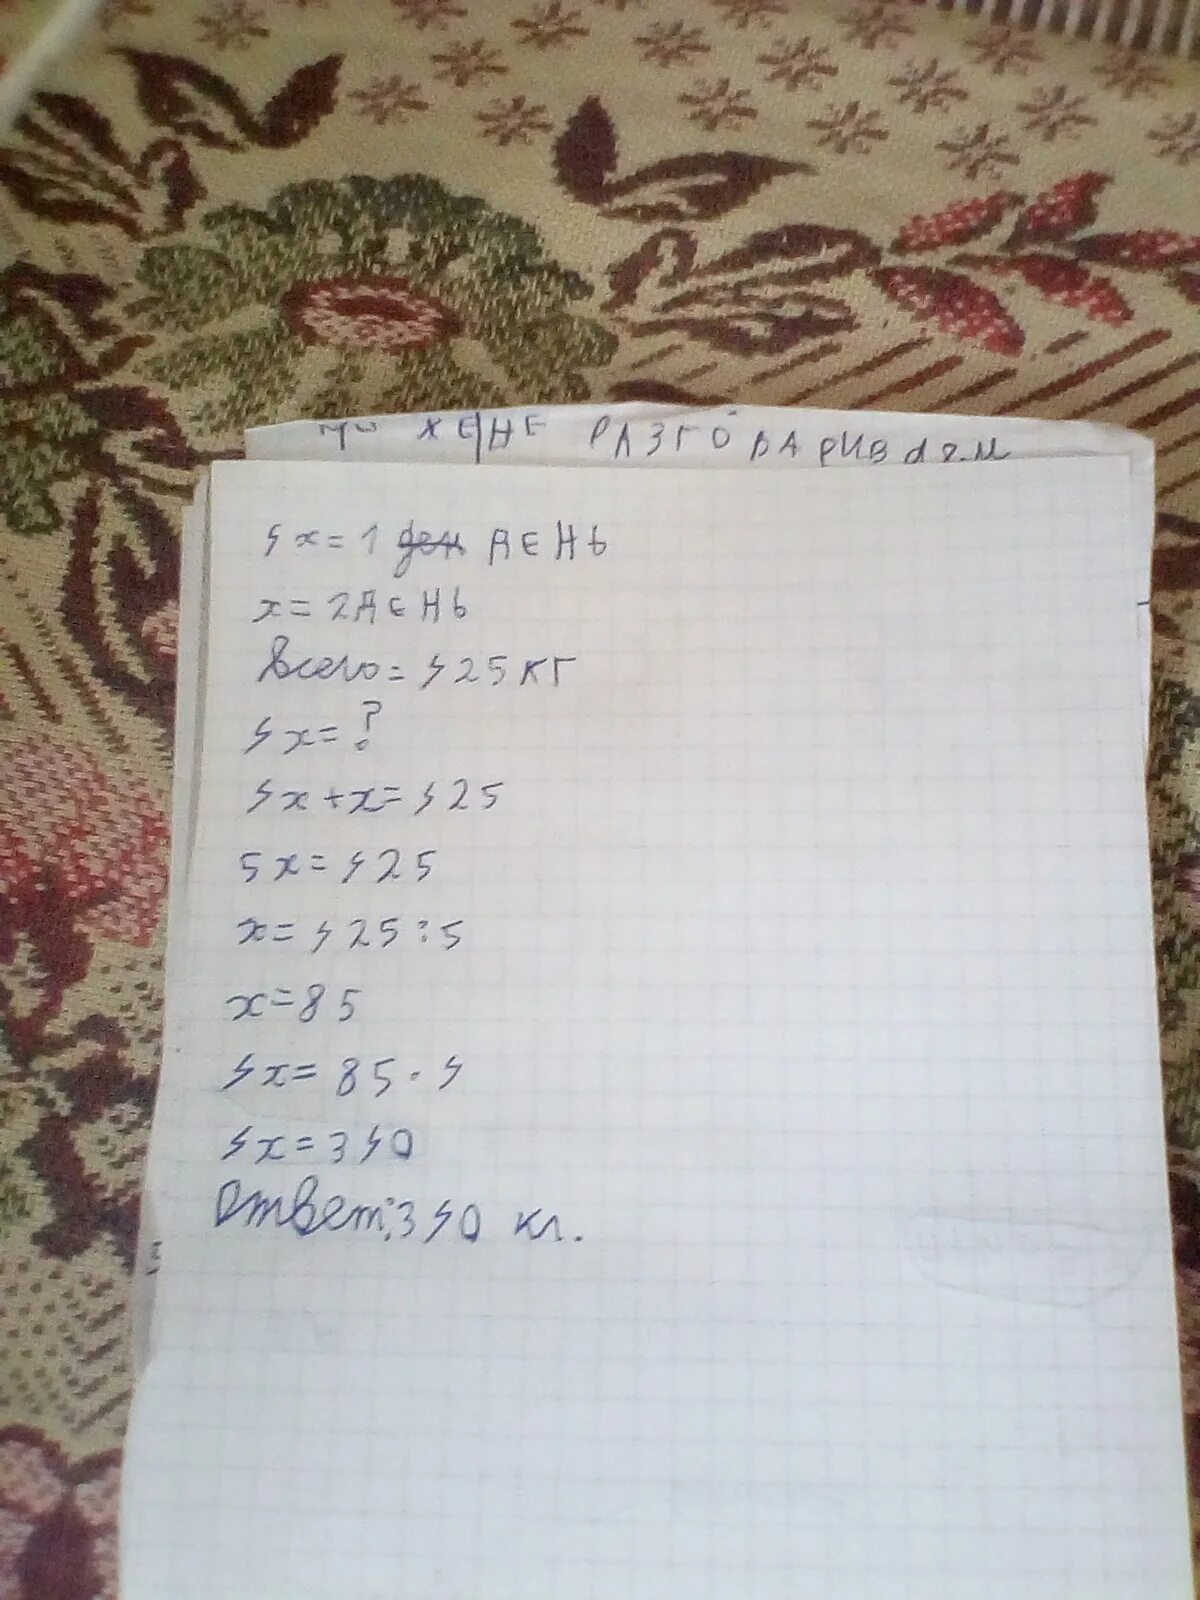 ХЕНЕ РАЗГОВАРИВАЕМ
4x=1 ден ДЕНЬ
x=2ДЕНЬ
Всего=425КГ
4x=?
4x+x=425
5x=425
x=425:5
x=85
4x=85·4
4x=340
Ответ:340 кг.